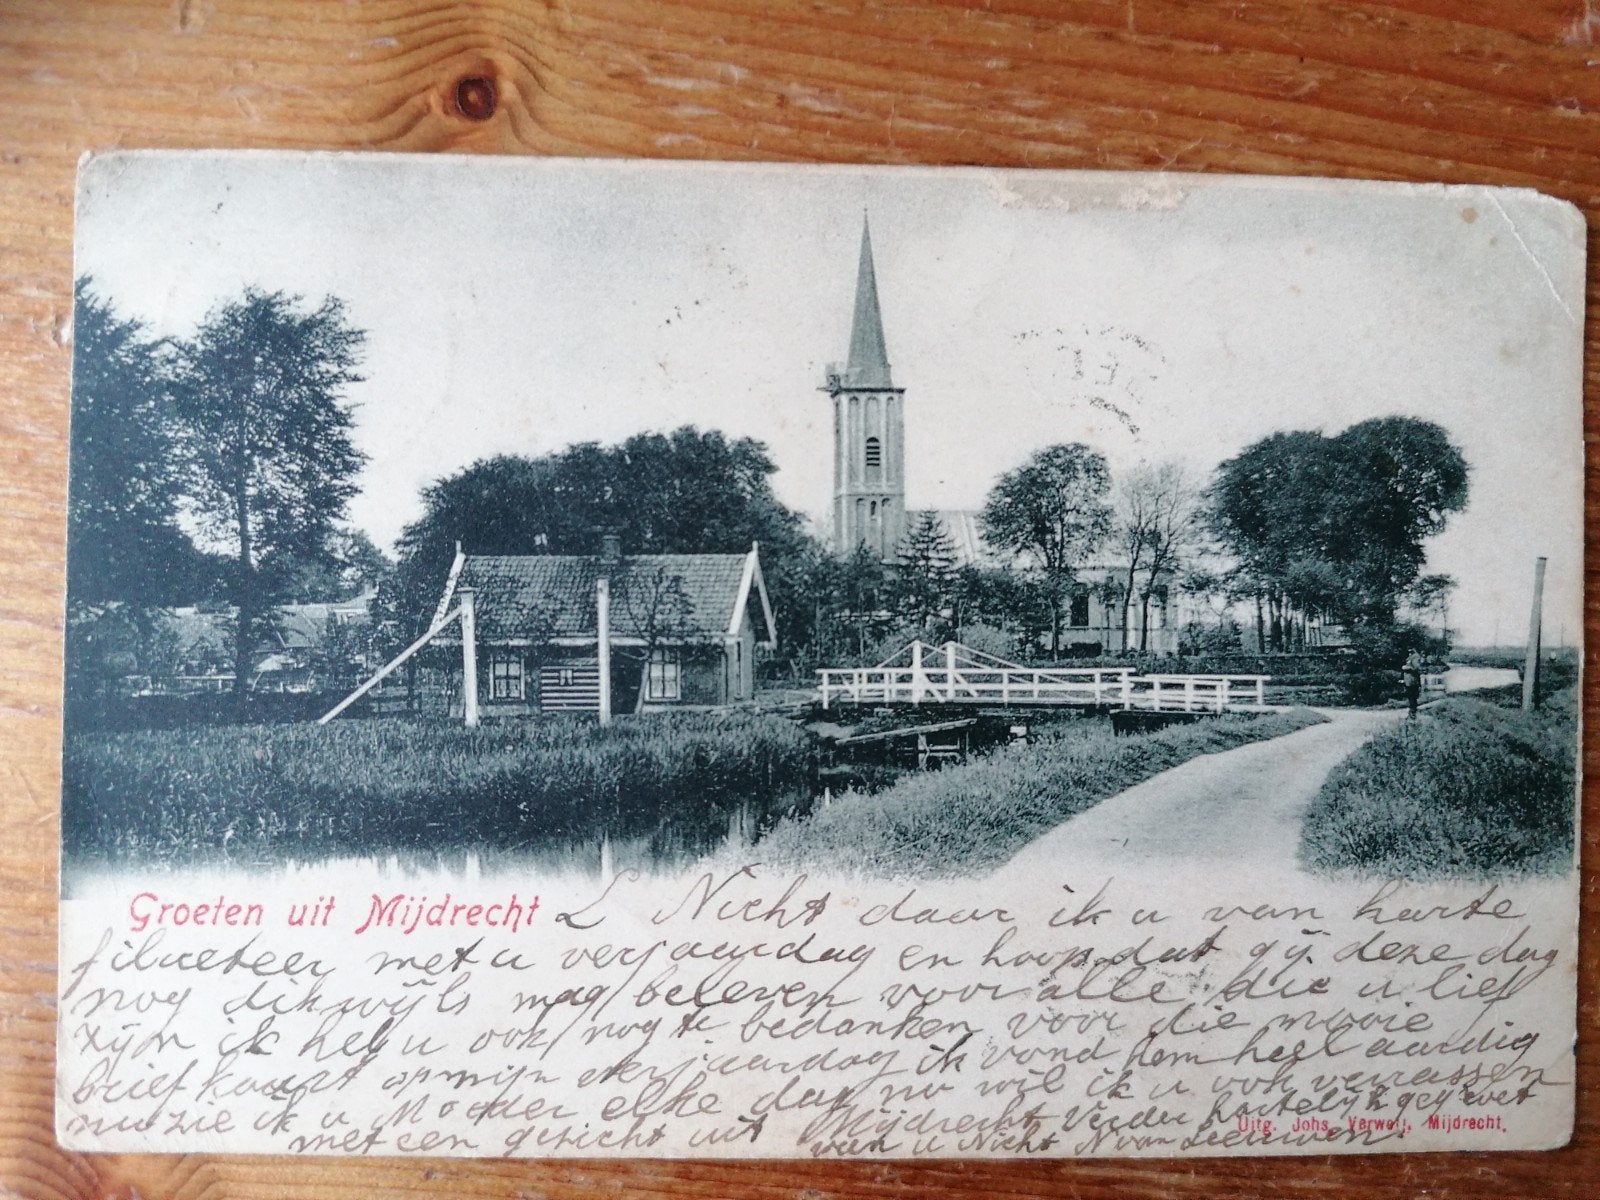 Groeten uit Mijdrecht L Nicht daar ik u van harte
filiceteer met u verjaardag en hoop dat gij deze dag
nog dikwijls mag beleven voor alle die u lief
zijn ik heb u ook nog te bedanken voor die mooie
briefkaart op mijn verjaardag ik vond hem heel aardig
nu zie ik u Moeder elke dag nu wil ik u ook verrassen
met een gezicht uit Mijdrecht Verder hartelijk gegroet
van u Nicht N van Leeuwen
Uitg. Johs. Verweij, Mijdrecht.